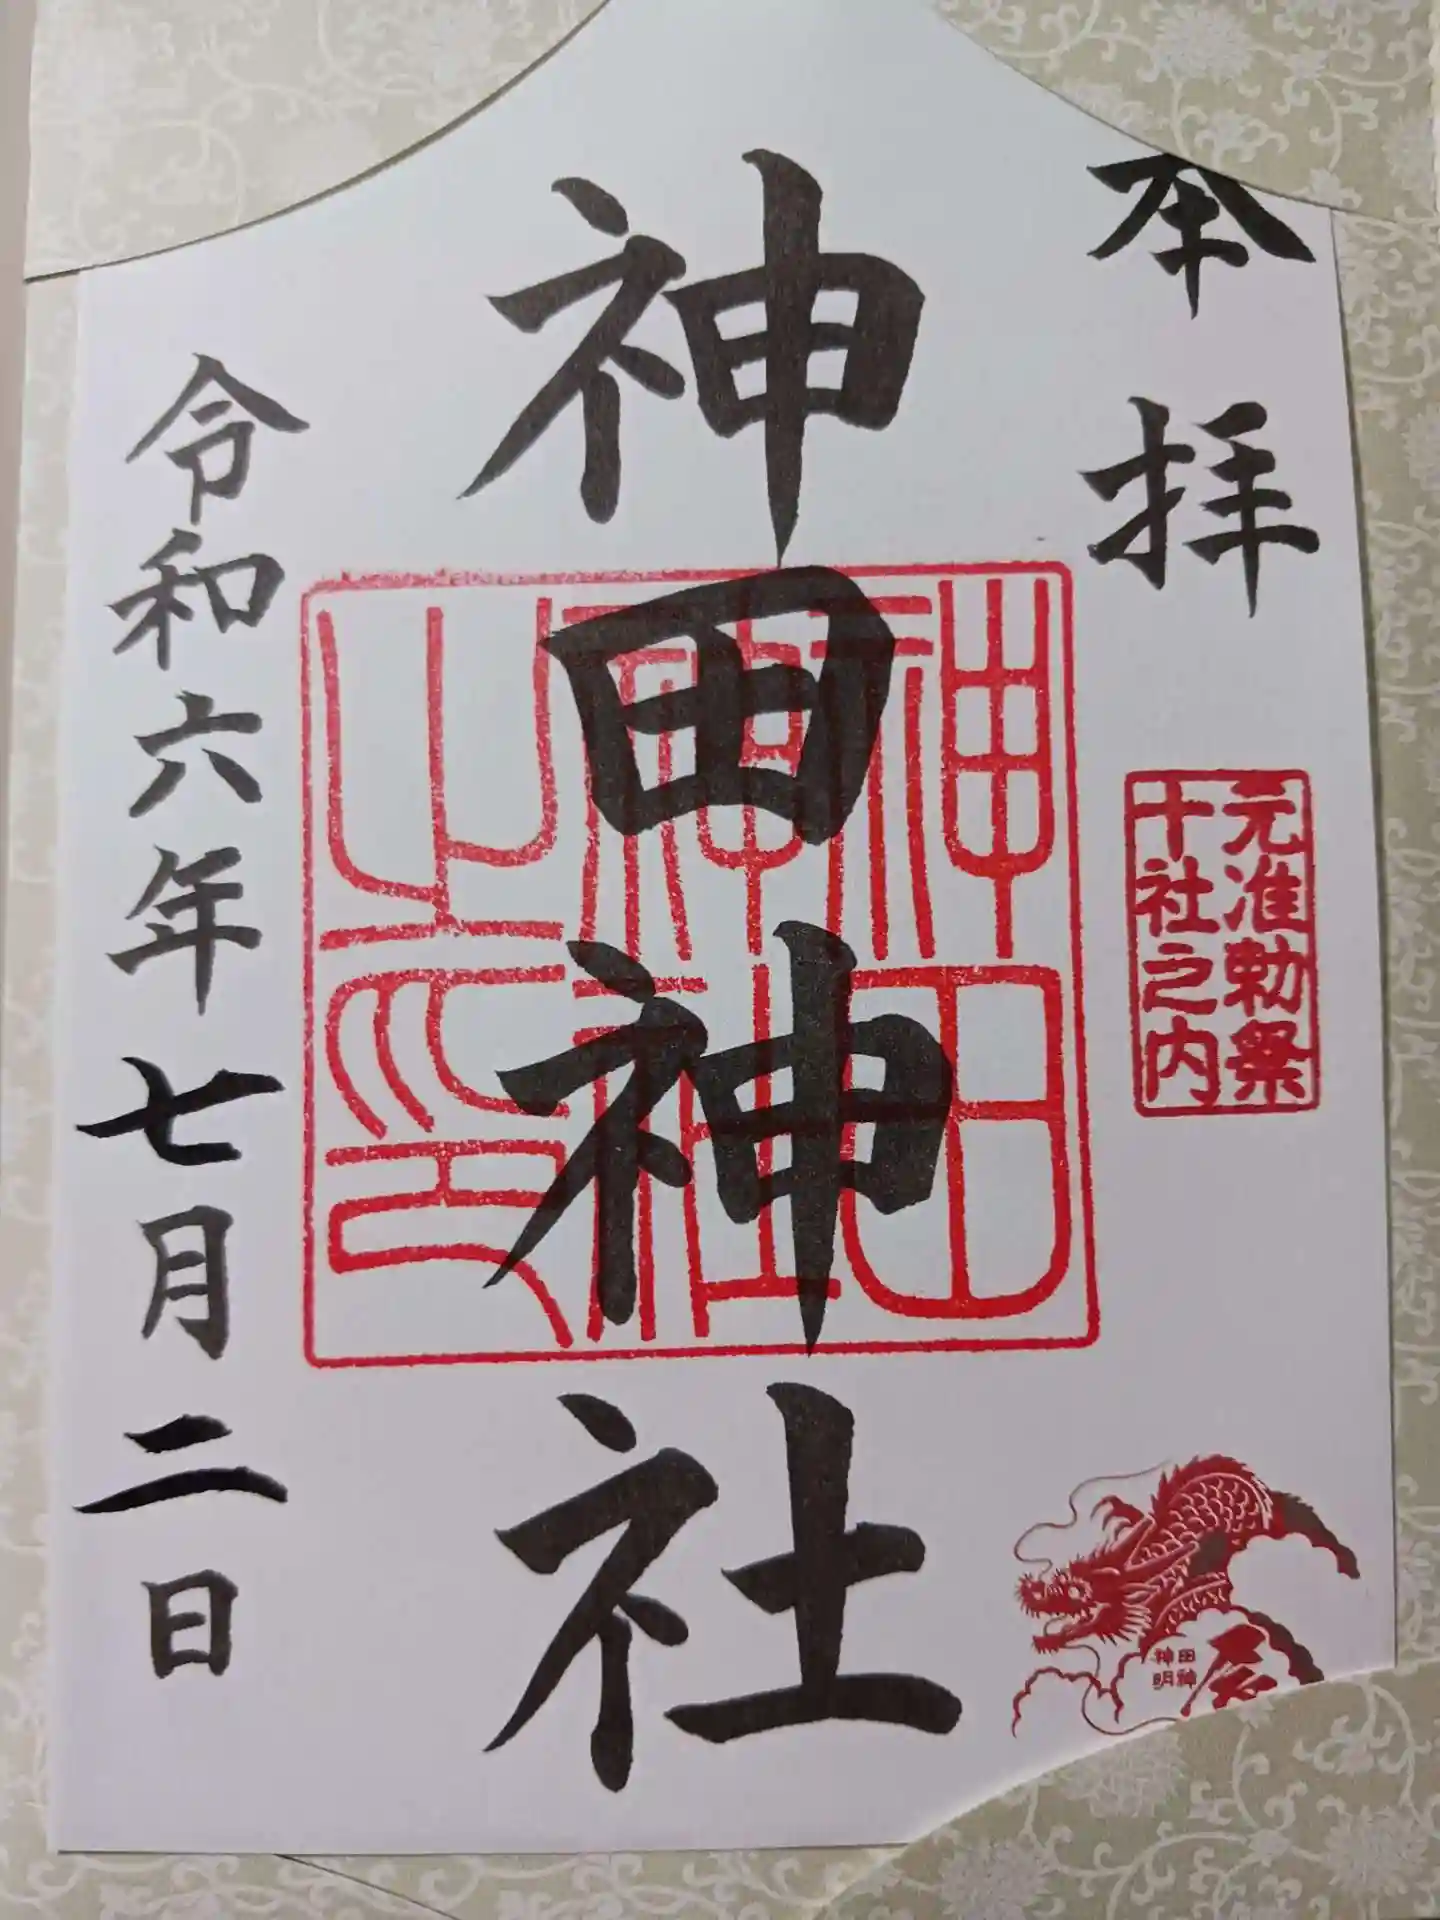 奉拝
元准勅祭
十社之内
神田神社
神田
神社
之印
令和六年七月二日
辰
神田
明神